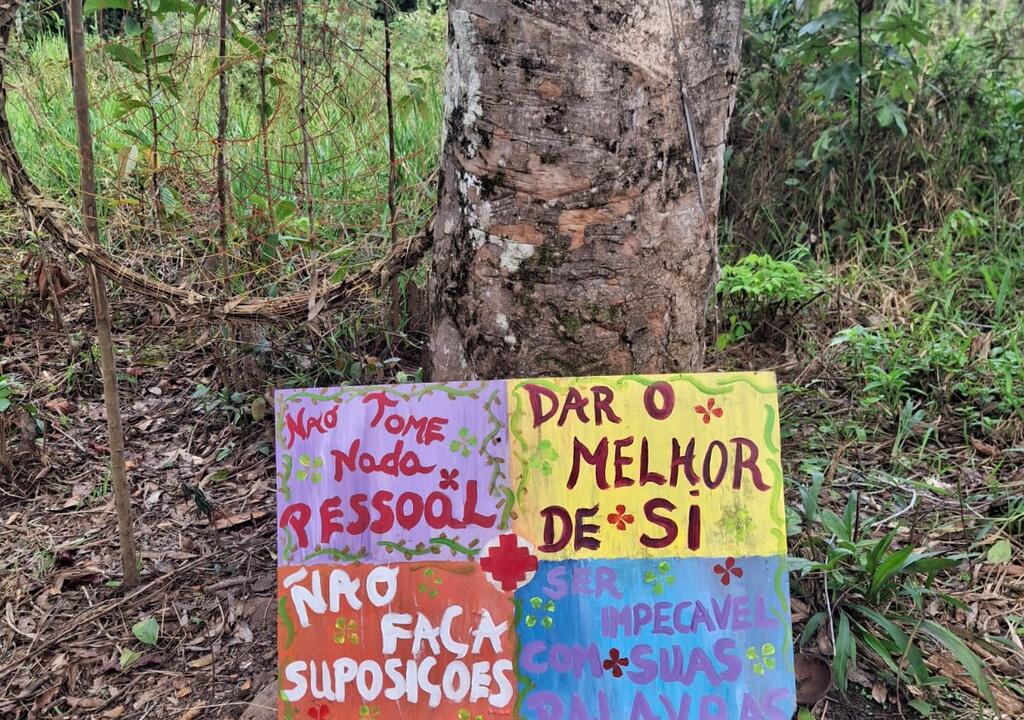 Não Tome
Nada
PESSOAL
DAR O
MELHOR
DE SI
ÑAO
FAÇA
SUPOSIÇOES
SER
IMPECAVEL
COM SUAS
PALAVRAS